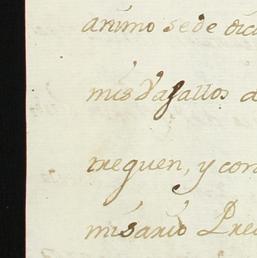 animo se de
mis Vasallos
treguen, y con
misario Pre